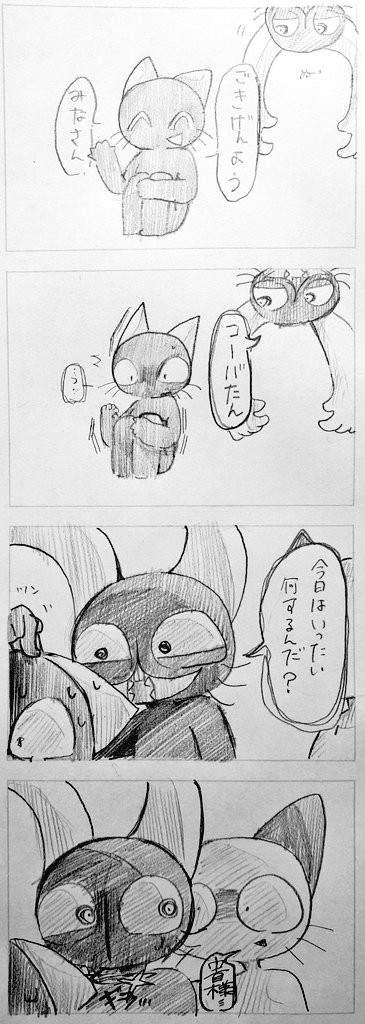 ごきげんよう
みなさん
コーバたん
う？
今日はいったい
何するんだ？
ツンツン
皆様